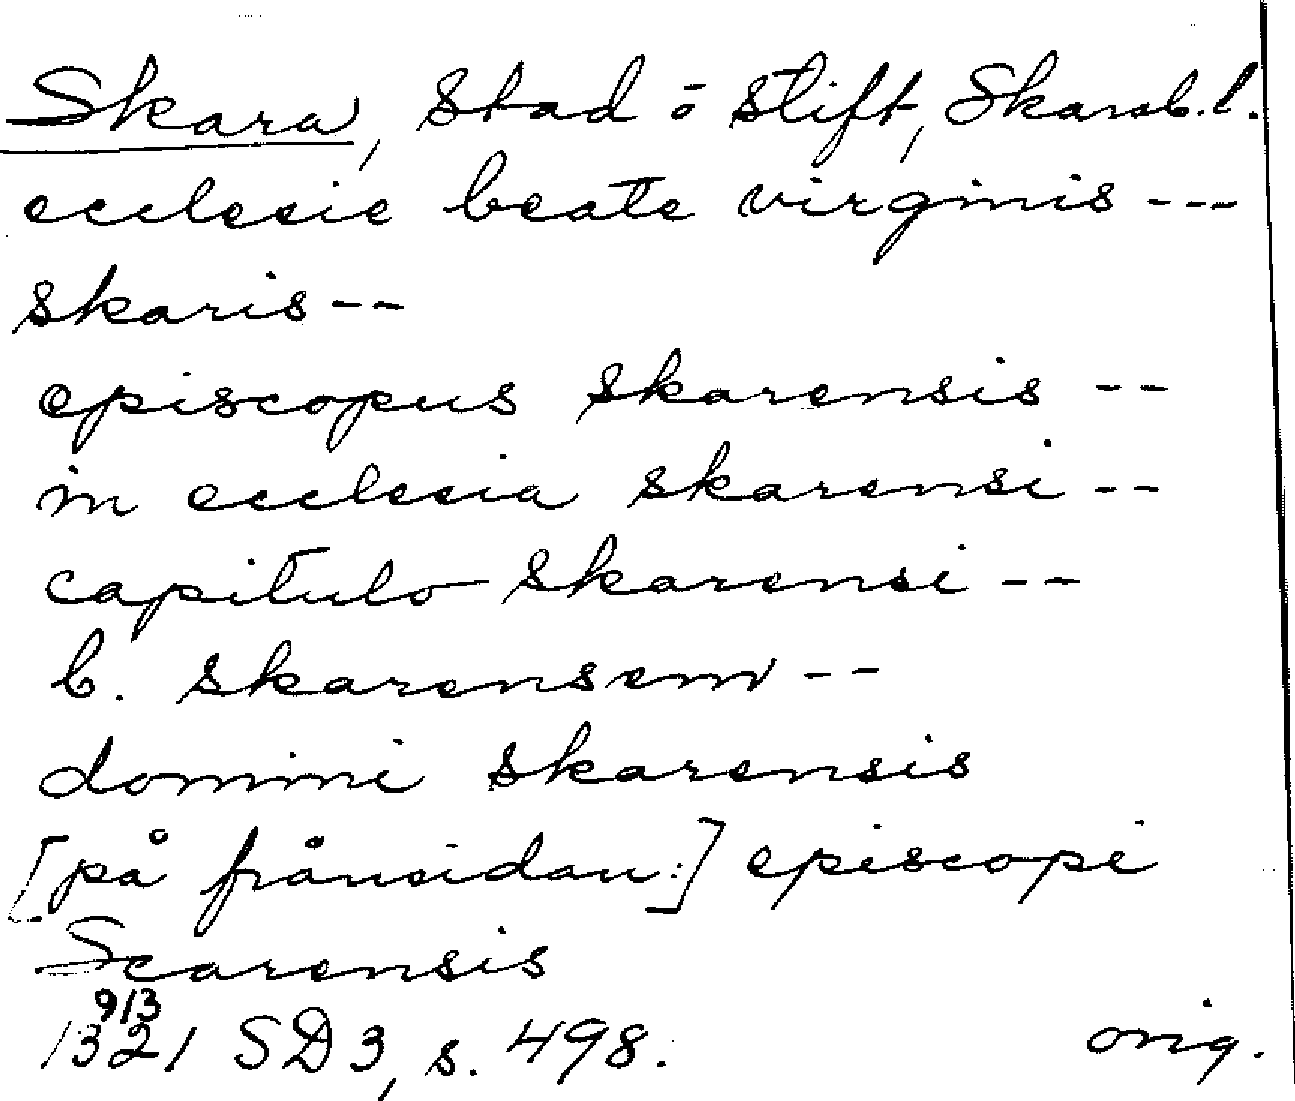 Skara, stad o stift, Skarab.l.
ecclesie beate virginis ---
skaris --
episcopus skarensis --
in ecclesia skarensi --
capitulo skarensi --
b. skarensem --
domini skarensis
[på frånsidan:] episcopi
Scarensis
9/3
1321 SD 3, s. 498. orig.